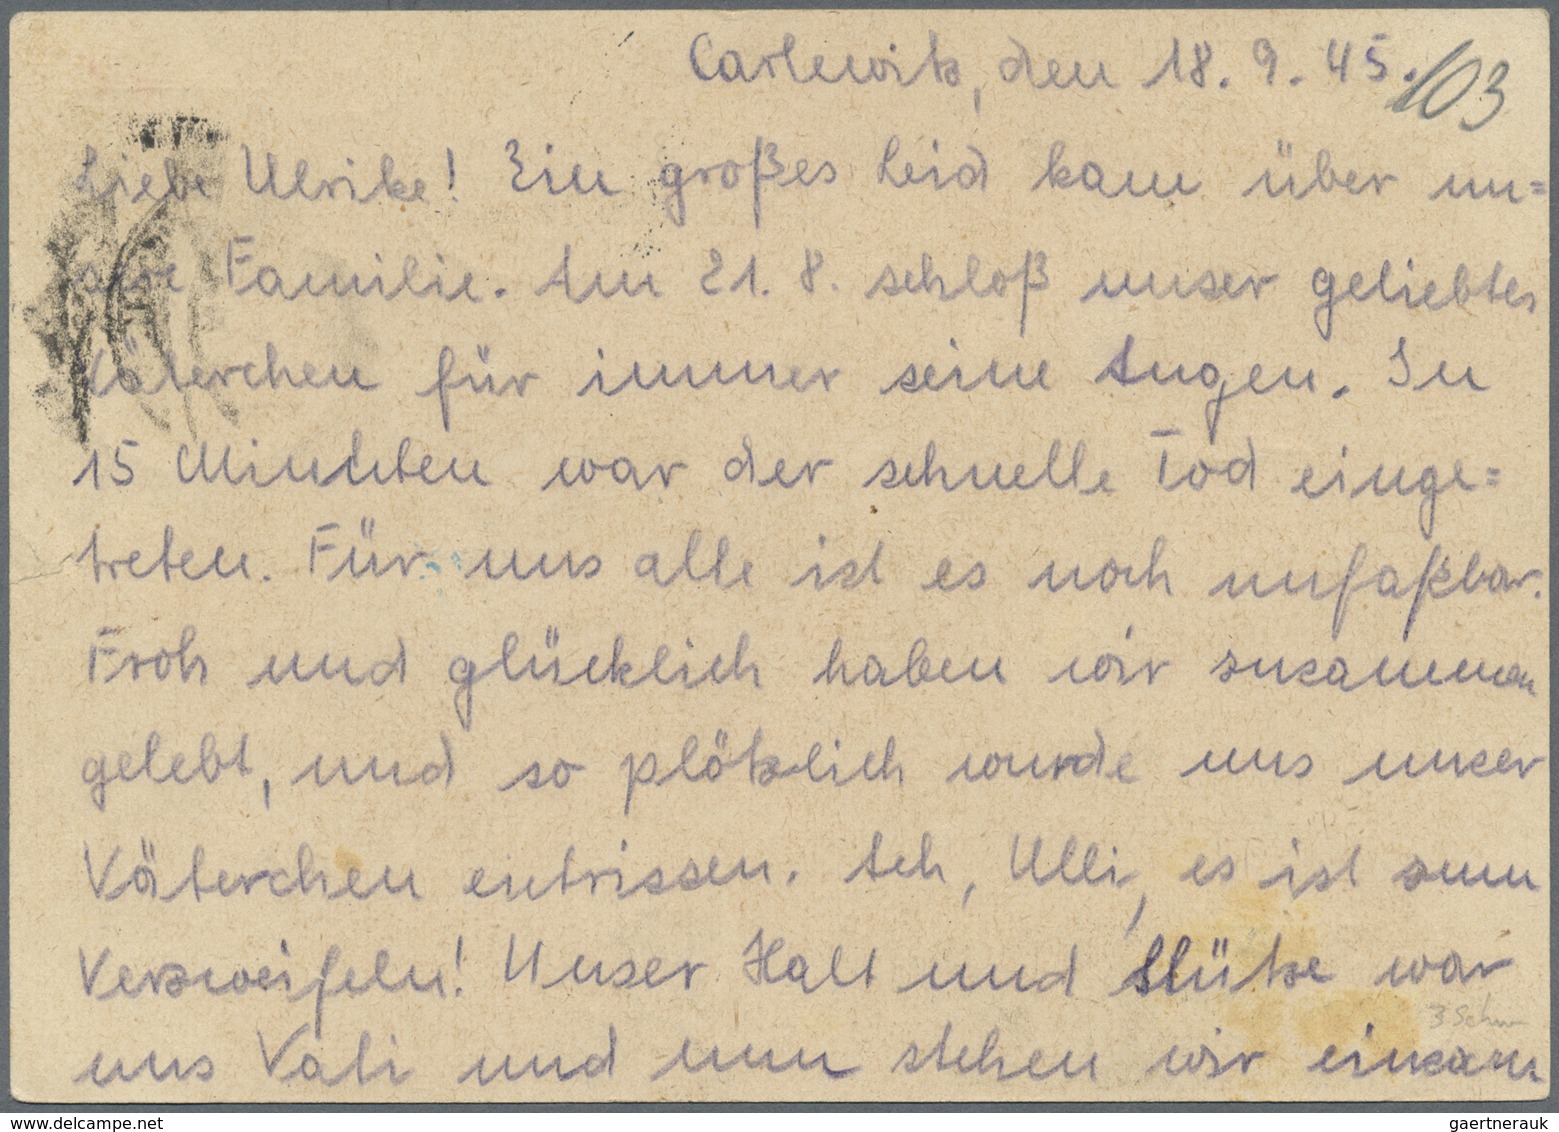 Carlewitz, den 18. 9. 45.
103
Liebe Ulrike! Ein großes Leid kam über un=
sere Familie. Am 21. 8. schloß unser geliebtes
Väterchen für immer seine Augen. In
15 Minuten war der schnelle Tod einge=
treten. Für uns alle ist es noch unfaßbar.
Froh und glücklich haben wir zusammen
gelebt, und so plötzlich wurde uns unser
Väterchen entrissen. Ach, Ulli, es ist zum
Verzweifeln! Unser Halt und Stütze war
uns Vati und nun stehen wir einsam
gaertnerauk @ delcampe.net